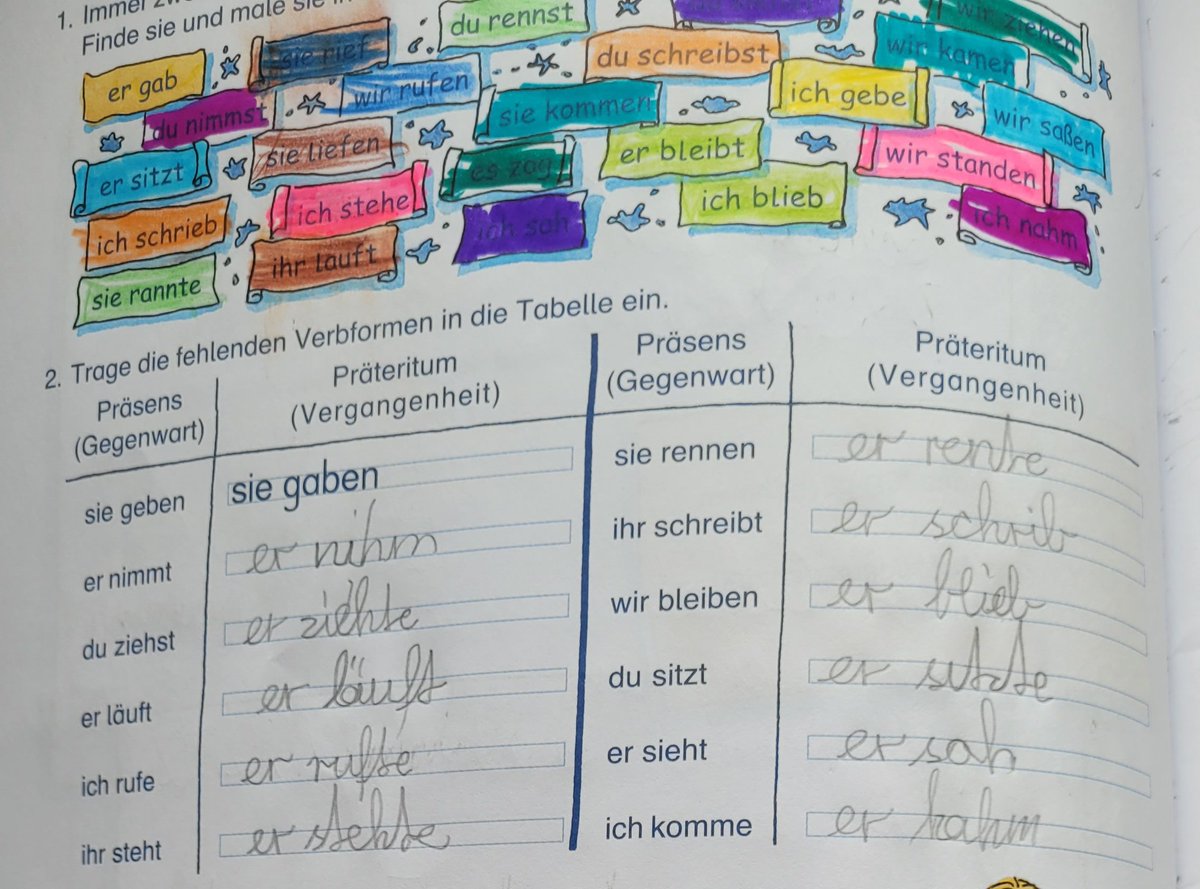 1. Immer
Finde sie und male sie
du rennst
wir ziehen
er gab
sie rief
du schreibst
wir kamen
wir rufen
ich gebe
du nimmst
sie kommen
wir saßen
er sitzt
sie liefen
es zog
er bleibt
wir standen
ich schrieb
ich stehe
ich sah
ich blieb
ich nahm
sie rannte
ihr lauft
2. Trage die fehlenden Verbformen in die Tabelle ein.
Präsens
(Gegenwart)
Präteritum
(Vergangenheit)
Präsens
(Gegenwart)
Präteritum
(Vergangenheit)
sie geben sie gaben
er nimmt er nihm
du ziehst er ziehte
er läuft er läuft
ich rufe er rufte
ihr steht er stehte
sie rennen er rente
ihr schreibt er schrib
wir bleiben er blieb
du sitzt er sitzte
er sieht er sah
ich komme er kahm